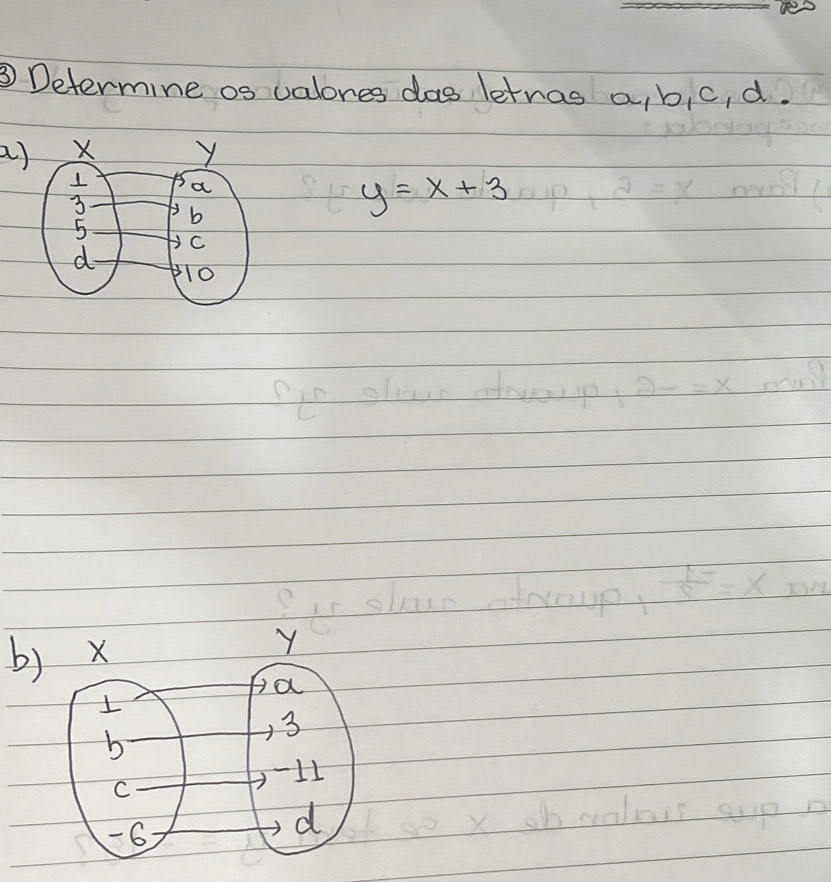 ③ Determine os valores das letras a, b, c, d.
a) X Y
1 → a y = x + 3
3 → b
5 → c
d → 10
b) X Y
1 → a
b → 3
c → -11
-6 → d